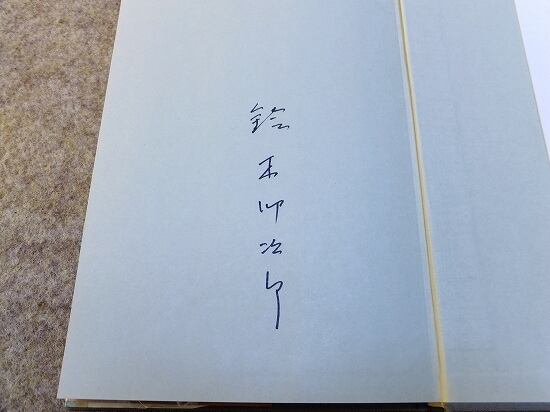 鈴木卯次郎